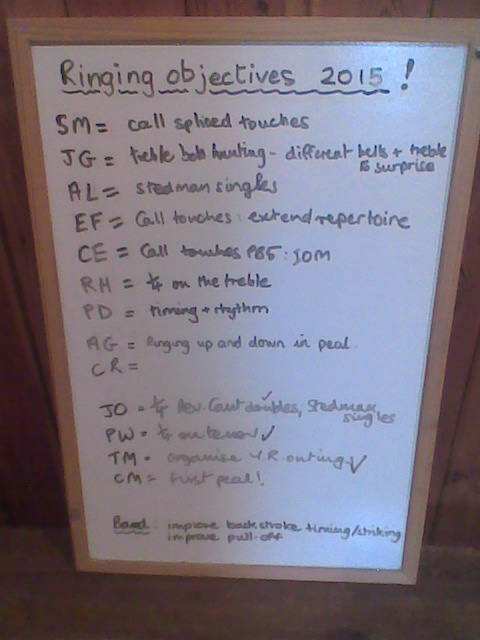 Ringing objectives 2015!
SM = call spliced touches
JG = treble bob hunting - different bells + treble
to surprise
AL = stedman singles
EF = Call touches: extend repertoire
CE = Call touches PB5: JOM
RH = 1/4 on the treble
PD = timing + rhythm
AG = Ringing up and down in peal.
CR =
JO = 1/4 Rev. Cant doubles, ✓ Stedman
singles
PW = 1/4 on tenor ✓
TM = organise Y.R. outing ✓
CM = first peal!
Band: improve backstroke timing/striking
improve pull-off